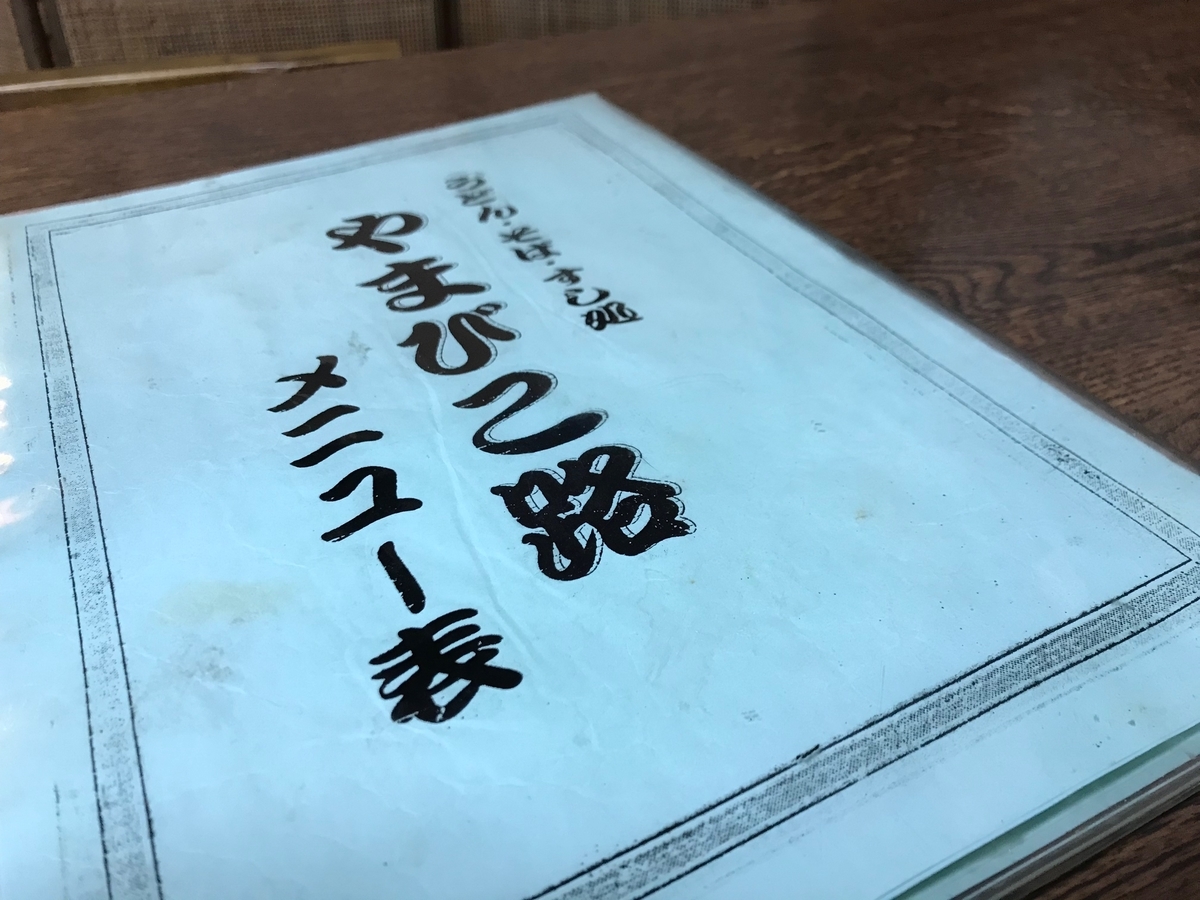 うどん・そば・すし処
やまびこ路
メニュー表